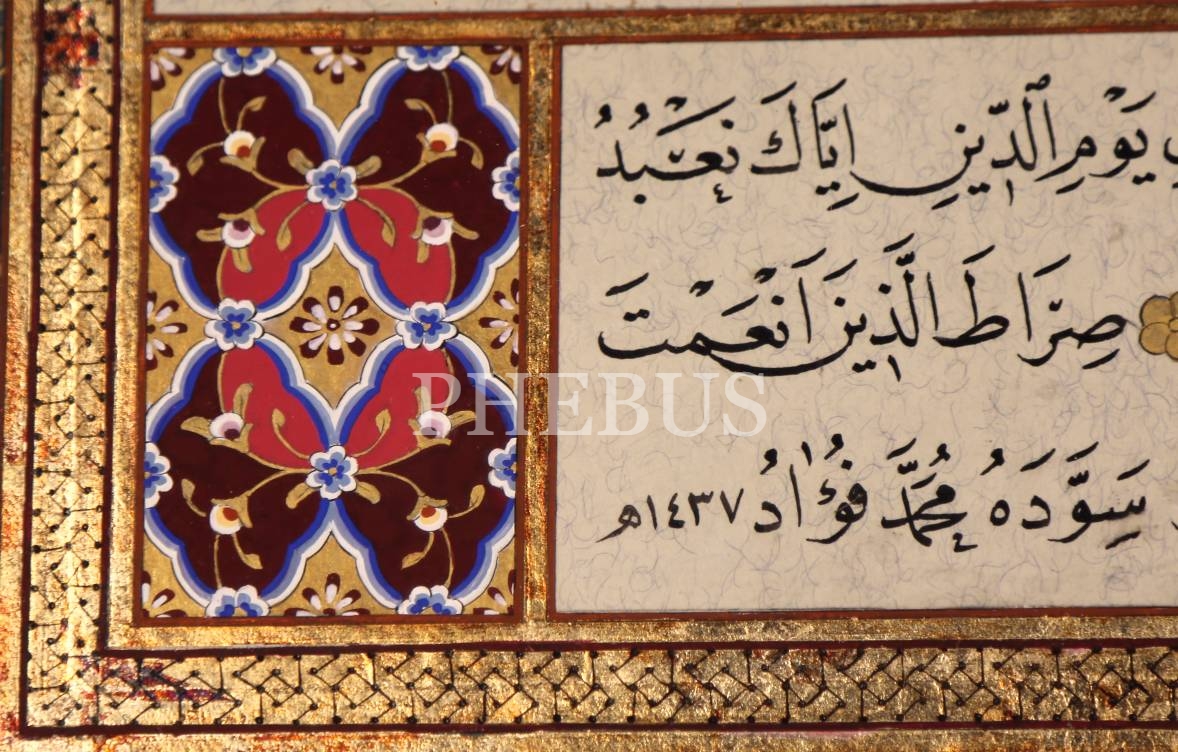 يَوْمِ ٱلدِّينِ اِيَّاكَ نَعْبُدُ
صِرَاطَ الَّذِينَ اَنْعَمْتَ
سَوَّدَهُ مُحَمَّدْ فُؤَادُ ١٤٣٧ھ
PHEBUS